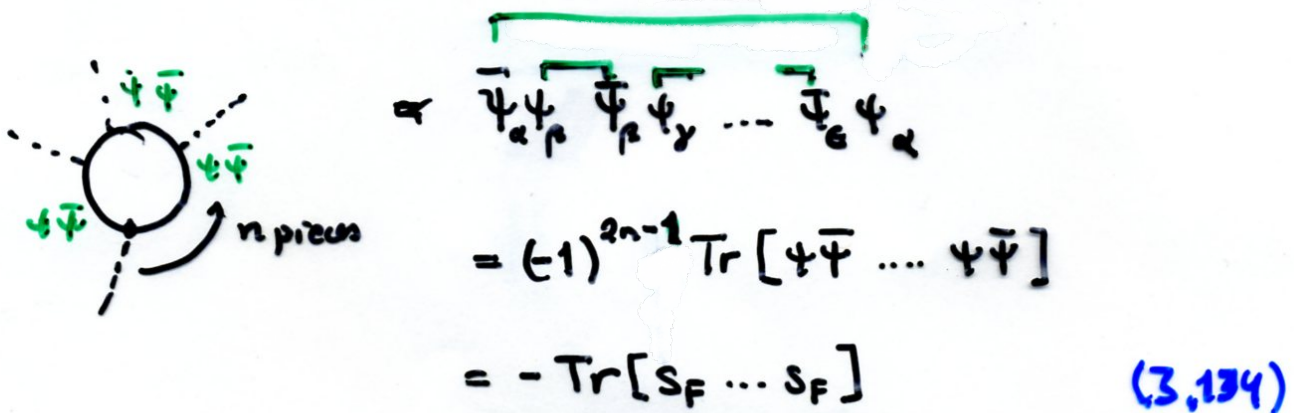 ψ ψ̄
ψ ψ̄
ψ ψ̄
n pieces
∝ ψ̄_α ψ_β ψ̄_β ψ_γ .... ψ̄_ε ψ_α
= (-1)^{2n-1} Tr [ψ ψ̄ .... ψ ψ̄]
= - Tr [S_F ... S_F]
(3.134)